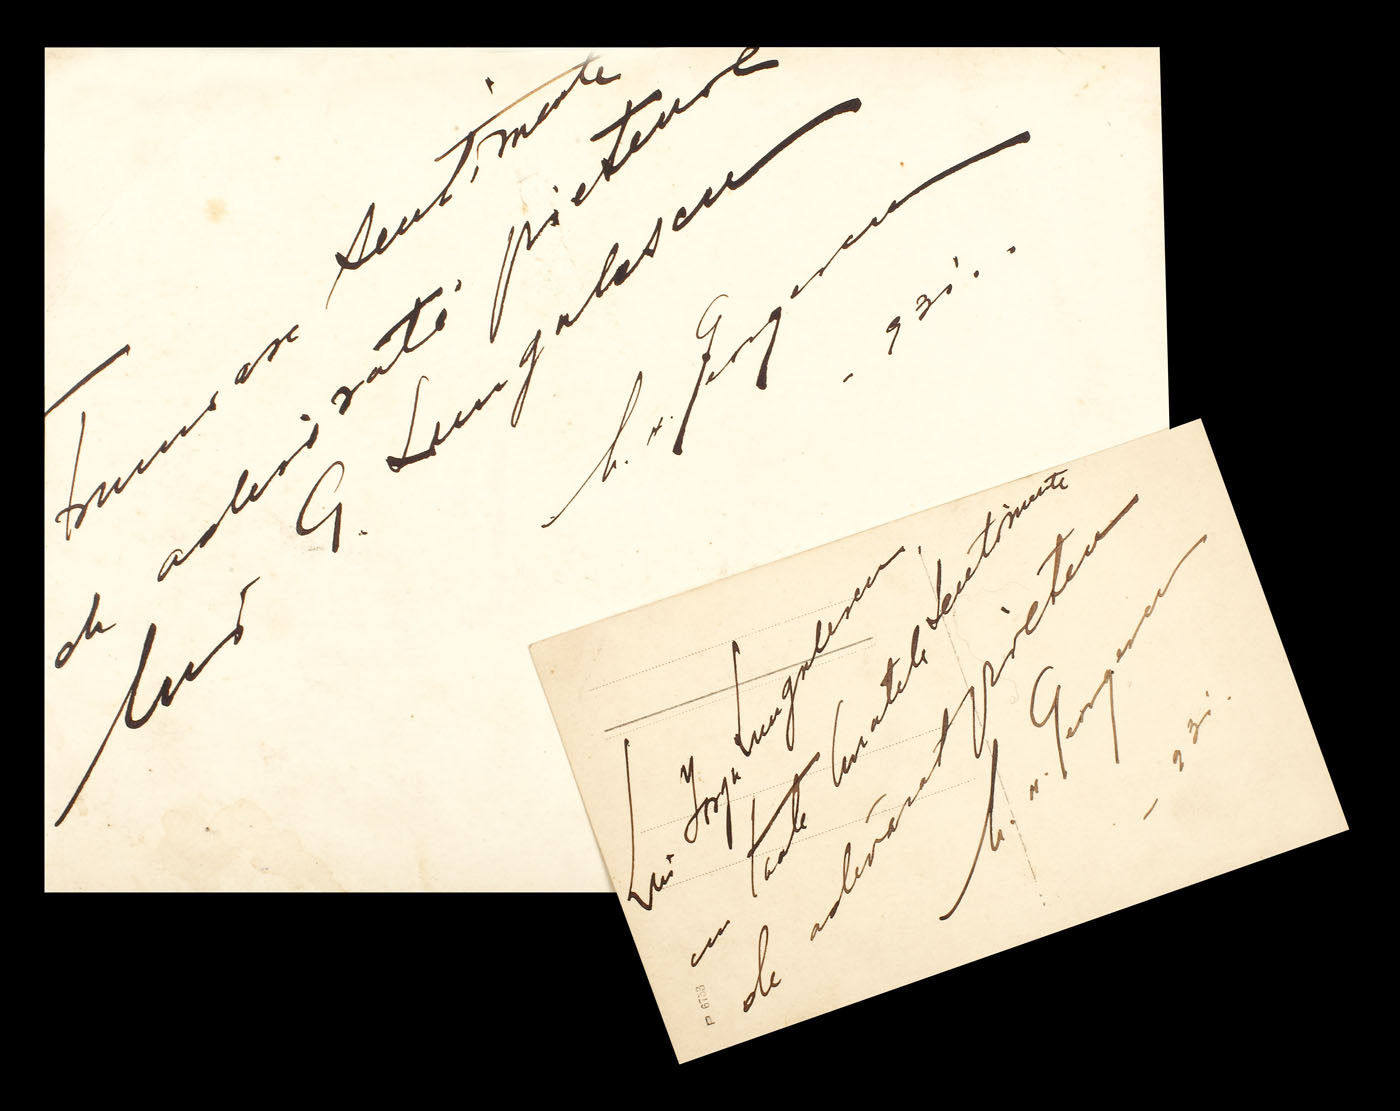 Frumoase sentimente
de adevărată prietenie
lui G. Lungulescu
C. N. Georgescu
- 931. .
Lui Lungulescu,
cu toate curatele sentimente
de adevărat prieten
C. N. Georgescu
- 931.
P 6738